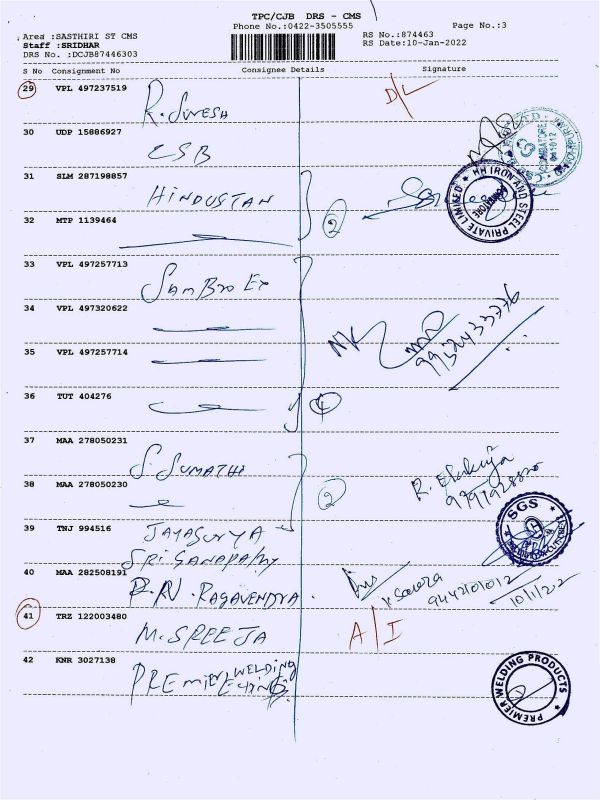 TPC/CJB DRS - CMS
Phone No.:0422-3505555 Page No.:3
Area :SASTHIRI ST CMS RS No.:874463
Staff :SRIDHAR RS Date:10-Jan-2022
DRS No. :DCJB87446303
S No Consignment No Consignee Details Signature
29 VPL 497237519 D/L
R. SURESH
30 UDP 15886927
CSB
31 SLM 287198857
HINDUSTAN
HH IRON AND STEEL PRIVATE LIMITED
32 MTP 1139464 2
33 VPL 497257713
Sam Bro Ex
34 VPL 497320622
9952433776
35 VPL 497257714
36 TUT 404276 4
37 MAA 278050231
S. SUMATHI
38 MAA 278050230 2
SGS
39 TNJ 994516 JAYASURYA
SRI GANAPATHY
40 MAA 282508191
R.N. RAGAVENDRA.
9442101012 10/1/22
41 TRZ 122003480 A/I
M. SREEJA
42 KNR 3027138
PREMIER WELDING
PREMIER WELDING PRODUCTS